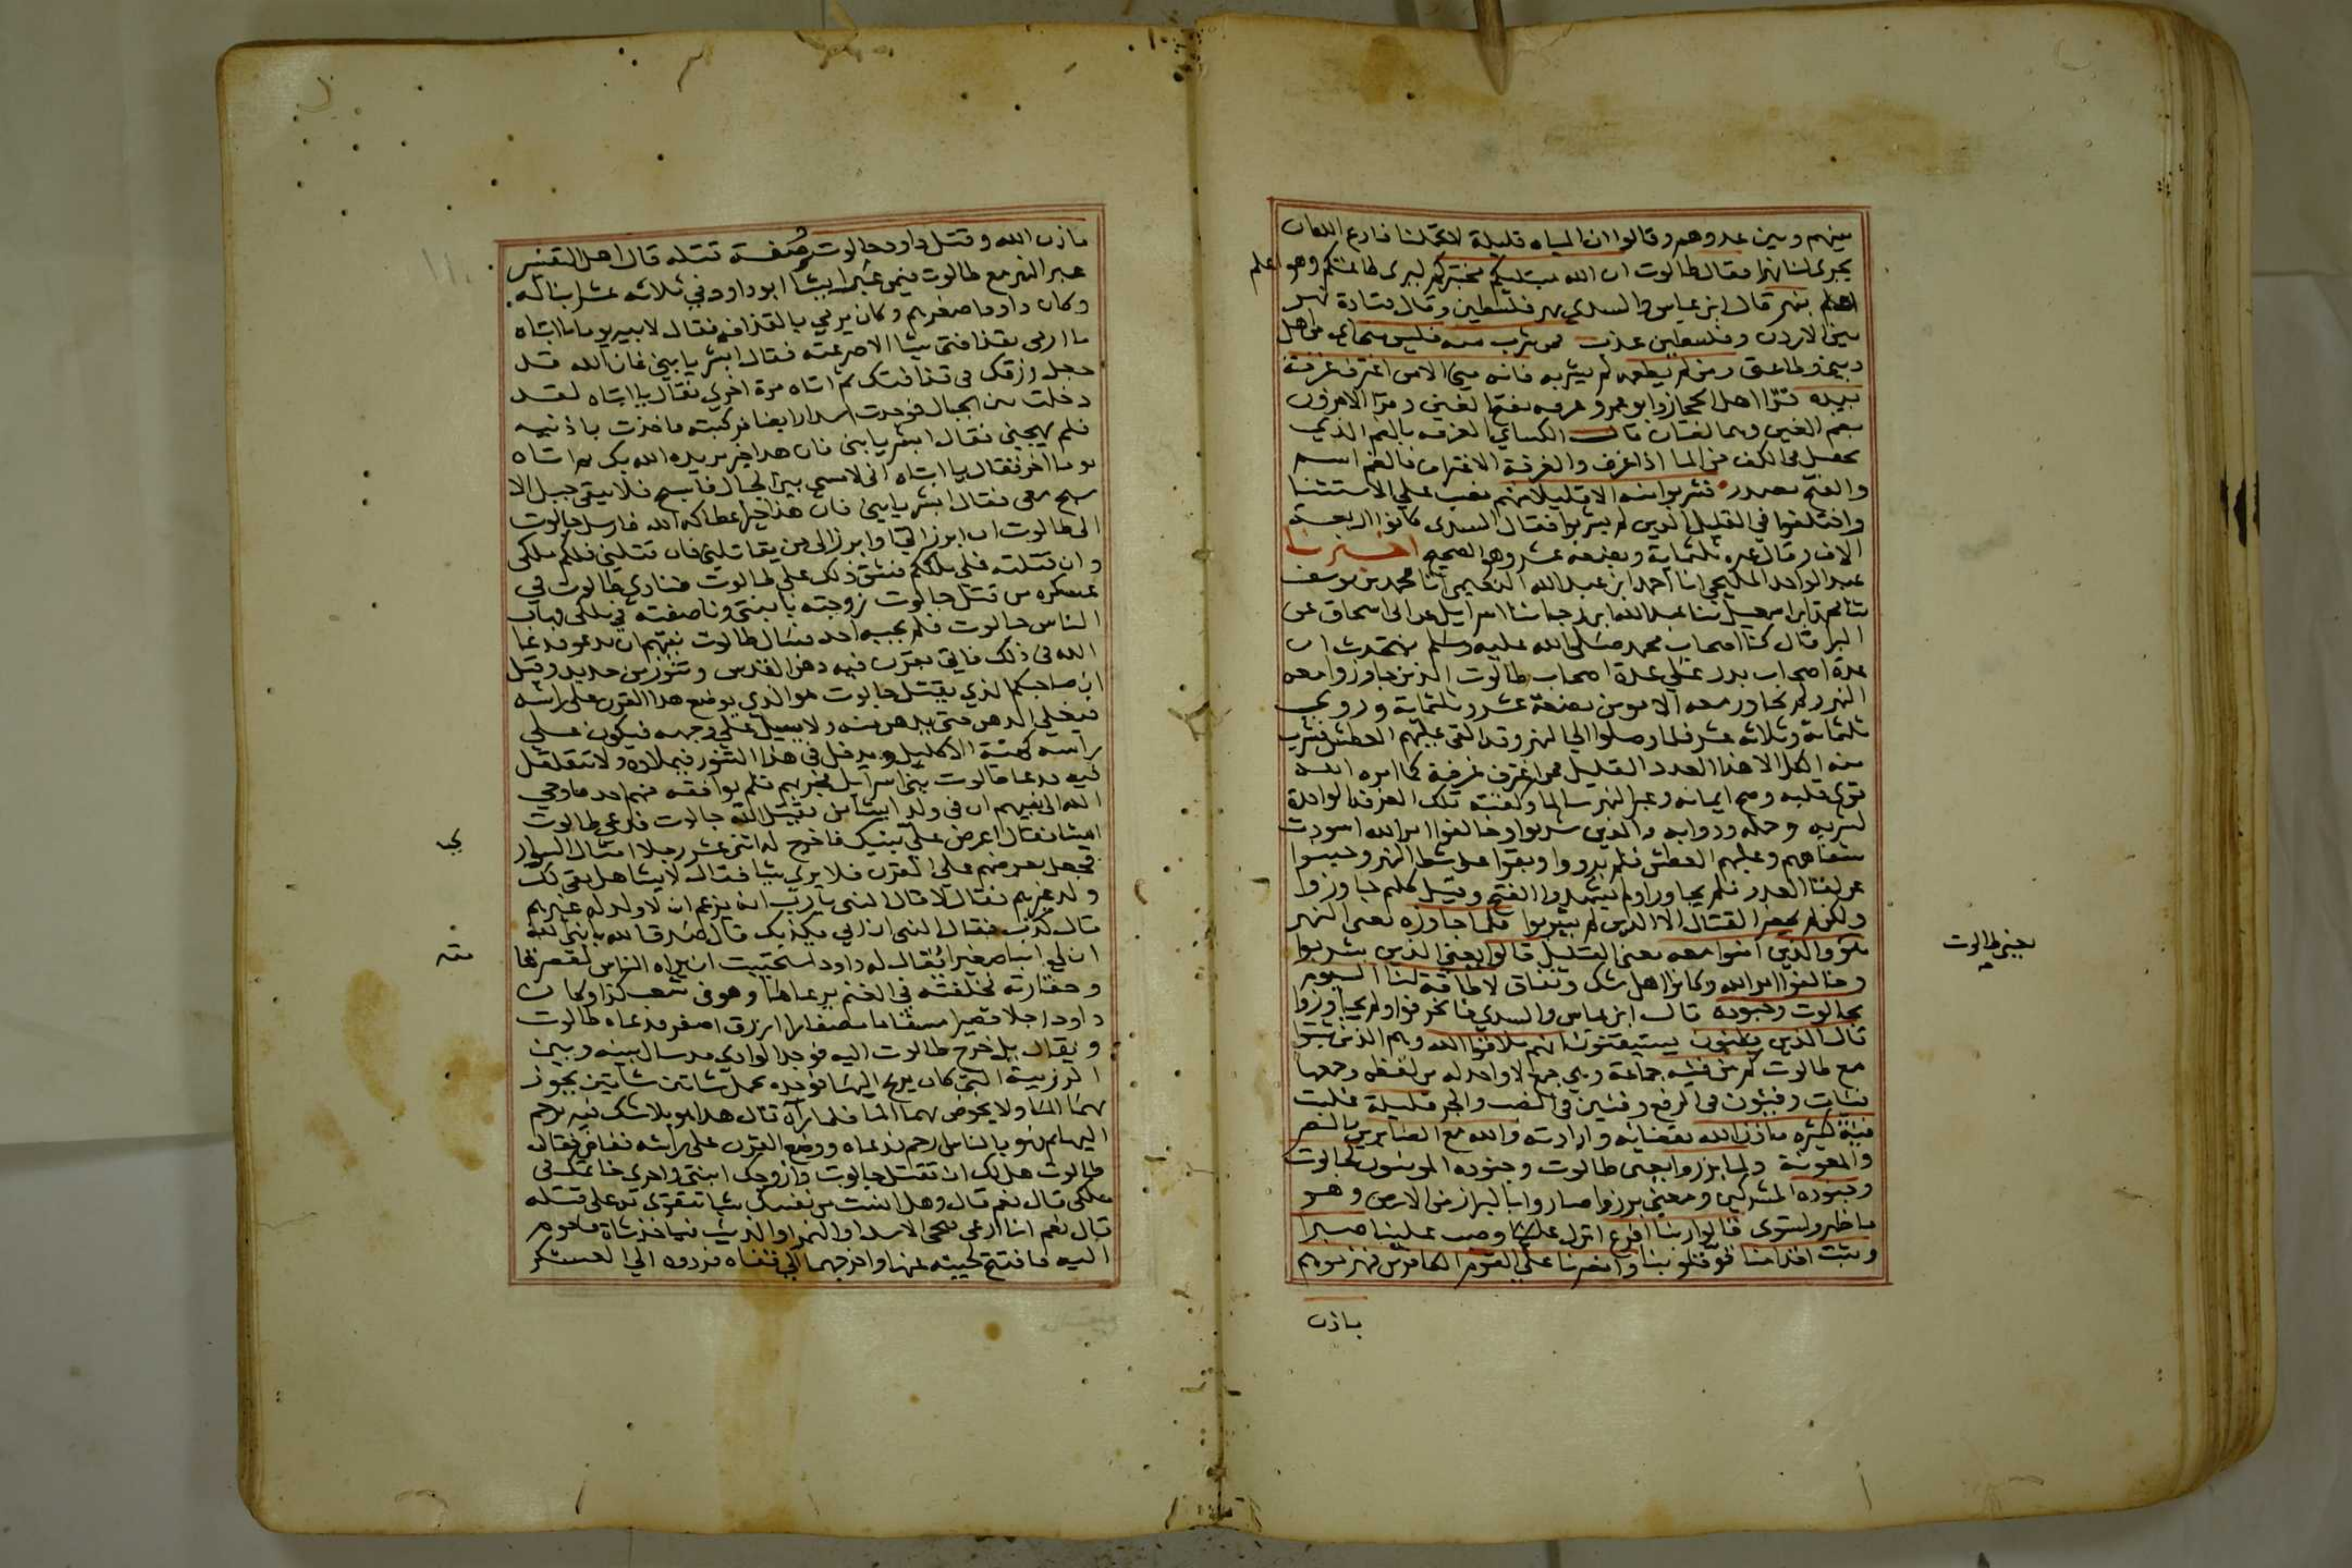 بينهم وبين عدوهم وقالوا ان المياه قليلة لا تحملنا فادع الله ان
يجري لنا نهرا فقال طالوت ان الله مبتليكم مختبركم ليرى طاعتكم وهو اعلم
بنهر قال ابن عباس والسدي هو نهر فلسطين وقال قتادة نهر
بين الاردن وفلسطين عذب فمن شرب منه فليس مني اي من اهل
ديني وطاعتي ومن لم يطعمه لم يشربه فانه مني الا من اغترف غرفة
بيده قرا اهل الحجاز وابو عمرو غرفه بفتح الغين وقرا الاخرون
بضم الغين وهما لغتان قال الكسائي الغرفه بالضم الذي
يحصل في الكف من الما اذا غرف والغرفة الاغتراف فالضم اسم
والفتح مصدر فشربوا منه الا قليلا منهم نصب على الاستثنا
واختلفوا في القليل الذين لم يشربوا فقال السدي كانوا اربعة
الاف وقال غيره ثلثماية وبضعة عشر وهو الصحيح اخبرنا
عبد الواحد المليحي انا احمد ابن عبد الله النعيمي انا محمد بن يوسف
ثنا محمد بن اسمعيل ثنا عبد الله ابن رجا ثنا اسرايل عن ابى اسحاق عن
البرا قال كنا اصحاب محمد صلى الله عليه وسلم نتحدث ان
عدة اصحاب بدر على عدة اصحاب طالوت الذين جاوزوا معه
النهر ولم يجاوز معه الا مومن بضعة عشر وثلثماية وروي
ثلثماية وثلاثه عشر فلما وصلوا الى النهر وقد القى عليهم العطش فشرب
منه الكل الا هذا العدد القليل فمن اغترف غرفة كما امره الله
قوي قلبه وصح ايمانه وعبر النهر سالما وكفته تلك الغرفه الواحدة
لشربه وحمله ودوابه والذين شربوا وخالفوا امر الله اسودت
شفاههم وغلبهم العطش فلم يرووا وبقوا على شط النهر وجبنوا
عن لقا العدو فلم يجاوزوا ولم يشهدوا الفتح وقيل كلهم جاوزوا
ولكن لم يحضر القتال الا الذين لم يشربوا فلما جاوزه يعنى النهر
هو والذين امنوا معه يعني القليل قالوا يعني الذين شربوا
وخالفوا امر الله وكانوا اهل شك ونفاق لا طاقة لنا اليوم
بجالوت وجنوده قال ابن عباس والسدي فانحرفوا ولم يجاوزوا
قال الذين يظنون يستيقنون انهم ملاقوا الله وهم الذين ثبتوا
مع طالوت كم من فئه جماعة وهي جمع لا واحد له من لفظه وجمعها
فئات وفئون في الرفع وفئين في النصب والجر قليلة غلبت
فئة كثيرة باذن الله بقضائه وارادته والله مع الصابرين بالنصر
والمعونة ولما برزوا يعنى طالوت وجنوده المومنون لجالوت
وجنوده المشركين ومعنى برزوا صاروا بالبراز من الارض وهو
ما ظهر واستوى قالوا ربنا افرغ انزل علينا وصب علينا صبرا
وثبت اقدامنا قو قلوبنا وانصرنا على القوم الكافرين فهزموهم
يعني طالوت
باذن
باذن الله وقتل داود جالوت صفة قتله قال اهل التفسير
عبر النهر مع طالوت فيمن عبر ايشا ابو داود في ثلاثه عشر ابنا له
وكان داود اصغرهم وكان يرمي بالقذافه فقال لابيه يوما يا ابتاه
ما ارمى بقذافتى شيا الا صرعته فقال ابشر يا بني فان الله قد
جعل رزقك في قذافتك ثم اتاه مرة اخرى فقال يا ابتاه لقد
دخلت بين الجبال فوجدت اسدا رابضا فركبته فاخذت باذنيه
فلم يهيجني فقال ابشر يا بنى فان هذا خير يريده الله بك ثم اتاه
يوما اخر فقال يا ابتاه انى لامشى بين الجبال فاسبح فلا يبقى جبل الا
سبح معى فقال ابشر يا بني فان هذا خير اعطاكه الله فارسل جالوت
الى طالوت ان ابرز الي او ابرز الى من يقاتلنى فان قتلني فلكم ملكى
وان قتلته فلي ملككم فشق ذلك على طالوت فنادى طالوت في
عسكره من قتل جالوت زوجته بابنتى وناصفته في ملكى فهاب
الناس جالوت فلم يجبه احد فسال طالوت نبيهم ان يدعو فدعا
الله فى ذلك فاتى بقرن فيه دهن القدس وتنور من حديد وقيل
ان صاحبكم الذي يقتل جالوت هو الذي يوضع هذا القرن على راسه
فيغلي الدهن حتى يدهن منه ولا يسيل على وجهه فيكون على
راسه كهئة الاكليل ويدخل في هذا التنور فيملاه ولا يتقلقل
فيه فدعا طالوت بني اسرايل فجربهم فلم يوافقه منهم احد فاوحى
الله الى نبيهم ان في ولد ايشا من يقتل الله جالوت فدعى طالوت
ايشا فقال اعرض علي بنيك فاخرج له اثنى عشر رجلا امثال السوار
ي
فجعل يعرضهم على القرن فلا يرى شيا فقال لايشا هل بقى لك
ولد غيرهم فقال لا قال النبى يا رب انه يزعم ان لا ولد له غيرهم
قال كذب فقال النبى ان ربي يكذبك قال صدق الله يا نبى الله
ان لي ابنا صغيرا يقال له داود استحييت ان يراه الناس لقصر قا
مته
وحقارته فخلفته في الغنم يرعاها وهو في شعب كذا وكان
داود رجلا قصيرا مسقاما مصفارا ازرق اصغر فدعاه طالوت
ويقال بل خرج طالوت اليه فوجد الوادي قد سال بينه وبين
الزريبة التي كان يريح اليها فوجده يحمل شاتين شاتين يجوز
بهما الما ولا يخوض بهما الما فلما رآه قال هذا هو بلا شك فيه يرحم
البهايم فهو بالناس ارحم فدعاه ووضع القرن على راسه ففاض فقال
طالوت هل لك ان تقتل جالوت وازوجك ابنتى واجري خاتمك في
ملكى قال نعم قال وهل انست من نفسك شيا تتقوى به على قتله
قال نعم انا ارعى فيجى الاسد او النمر او الذئب فياخذ شاة فاقوم
اليه فافتح لحييه عنها واخرجهما الى قفاه فردوه الى العسكر